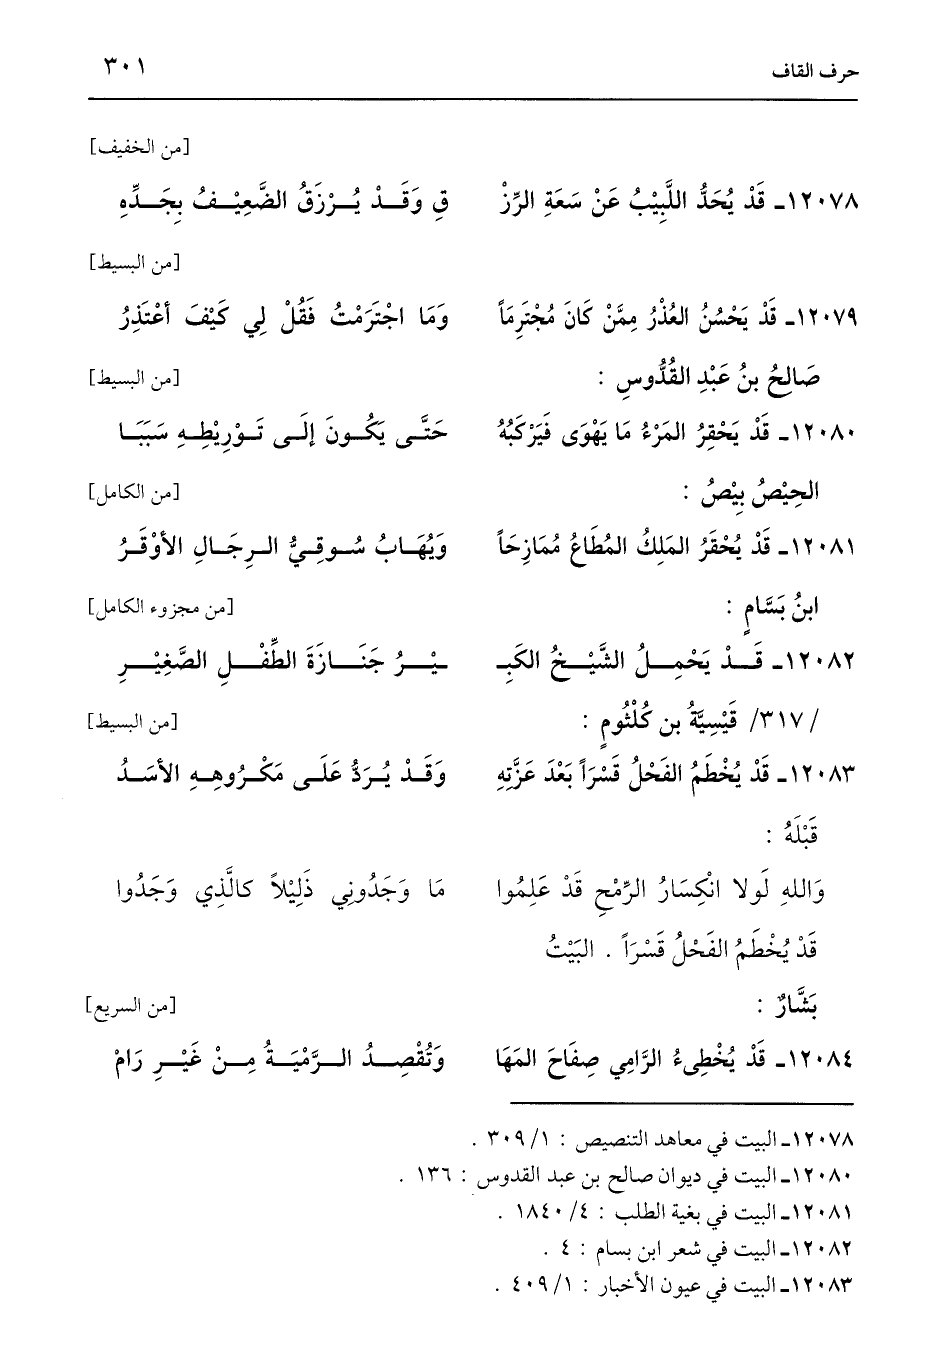 حرف القاف ٣٠١
[من الخفيف]
١٢٠٧٨ـ قَدْ يُحَدُّ اللَّبِيْبُ عَنْ سَعَةِ الرِّزْ قِ وَقَـدْ يُـرْزَقُ الضَّعِيْـفُ بِجَـدِّهِ
[من البسيط]
١٢٠٧٩ـ قَدْ يَحْسُنُ العُذْرُ مِمَّنْ كَانَ مُجْتَرِمَاً وَمَا اجْتَرَمْتُ فَقُلْ لِي كَيْفَ أَعْتَذِرُ
صَالِحُ بنُ عَبْدِ القُدُّوسِ : [من البسيط]
١٢٠٨٠ـ قَدْ يَحْقِرُ المَرْءُ مَا يَهْوَى فَيَرْكَبُهُ حَتَّـى يَكُـونَ إلَـى تَـوْرِيْطِـهِ سَبَبَـا
الحِيْصُ بِيْصُ : [من الكامل]
١٢٠٨١ـ قَدْ يُحْقَرُ المَلِكُ المُطَاعُ مُمَازِحَاً وَيُهَـابُ سُـوقِـيُّ الـرِجَـالِ الأَوْقَـرُ
ابنُ بَسَّامٍ : [من مجزوء الكامل]
١٢٠٨٢ـ قَـدْ يَحْمِـلُ الشَّيْـخُ الكَبِـ ـيْـرُ جَنَـازَةَ الطِّفْـلِ الصَّغِيْـرِ
/٣١٧/ قَيْسِيَّةُ بن كُلْثُومٍ : [من البسيط]
١٢٠٨٣ـ قَدْ يُخْطَمُ الفَحْلُ قَسْرَاً بَعْدَ عَزَّتِهِ وَقَـدْ يُـرَدُّ عَلَـى مَكْـرُوهِـهِ الأَسَـدُ
قَبْلَهُ :
وَاللهِ لَولا انْكِسَارُ الرِّمْحِ قَدْ عَلِمُوا مَا وَجَدُونِي ذَلِيْلاً كالَّذِي وَجَدُوا
قَدْ يُخْطَمُ الفَحْلُ قَسْرَاً . البَيْتُ
بَشَّارٌ : [من السريع]
١٢٠٨٤ـ قَدْ يُخْطِىءُ الرَّامِي صِفَاحَ المَهَا وَتُقْصِـدُ الـرَّمْيَـةُ مِـنْ غَيْـرِ رَامْ
١٢٠٧٨ـ البيت في معاهد التنصيص : ٣٠٩/١ .
١٢٠٨٠ـ البيت في ديوان صالح بن عبد القدوس : ١٣٦ .
١٢٠٨١ـ البيت في بغية الطلب : ١٨٤٠/٤ .
١٢٠٨٢ـ البيت في شعر ابن بسام : ٤ .
١٢٠٨٣ـ البيت في عيون الأخبار : ٤٠٩/١ .